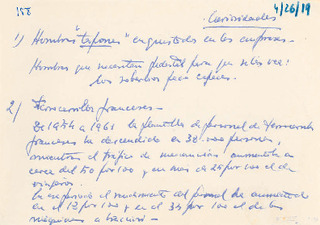 158
4/26/19
Curiosidades
1) Hombres "tapones" enquistados en las empresas.-
Hombres que necesitan pedestal para que se les vea:
los soberbios poco capaces.
2) Ferrocarriles franceses.-
De 1954 a 1961 la plantilla de personal de ferrocarriles
franceses ha descendido en 38.000 personas,
mientras el tráfico de mercancías aumentaba
cerca del 50 por 100 y en mas de 25 por 100 el de
viajeros.
el rendimiento del personal ha aumentado
en el 12 por 100 y en el 35 por 100 el de las
máquinas a tracción -